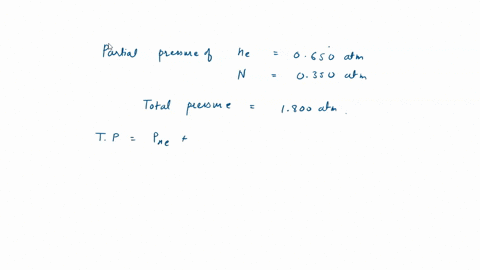 Partial pressure of He = 0.650 atm
N = 0.350 atm
Total pressure = 1.800 atm.
T.P = P_He +